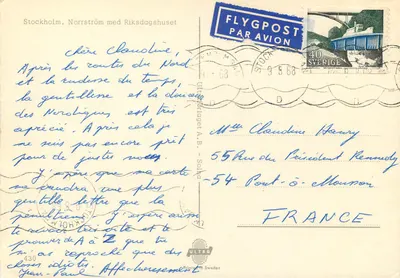 Stockholm, Norrström med Riksdagshuset
FLYGPOST
PAR AVION
40
SVERIGE
STOCKHOLM
9 5 68
D
Chère Claudine,
Après les routes du Nord
et la rudesse du temps,
la gentillesse et la douceur
des Nordiques est très
apprécié. Après cela je
ne suis pas encore prêt
pour de justes noces.
J'espère que ma carte
me vaudra une plus
gentille lettre que la
pénultième. J'espère aussi
te revoir très vite et te
prouver de A à Z que tu
m'as reproché que des
choses idiotes.
Jean-Paul Affectueusement
Mlle Claudine Haury
55 Rue du Président Kennedy
54 Pont-à-Mousson
FRANCE
ULTRA
Sweden
430